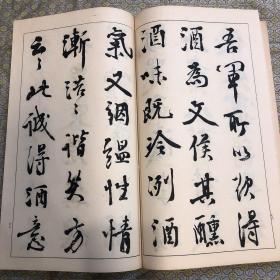 吾軍所以欲得
酒為文俟其醺
酒味既冷冽酒
氣又絪縕性情
漸浩〻諧笑方
云〻此誠得酒意